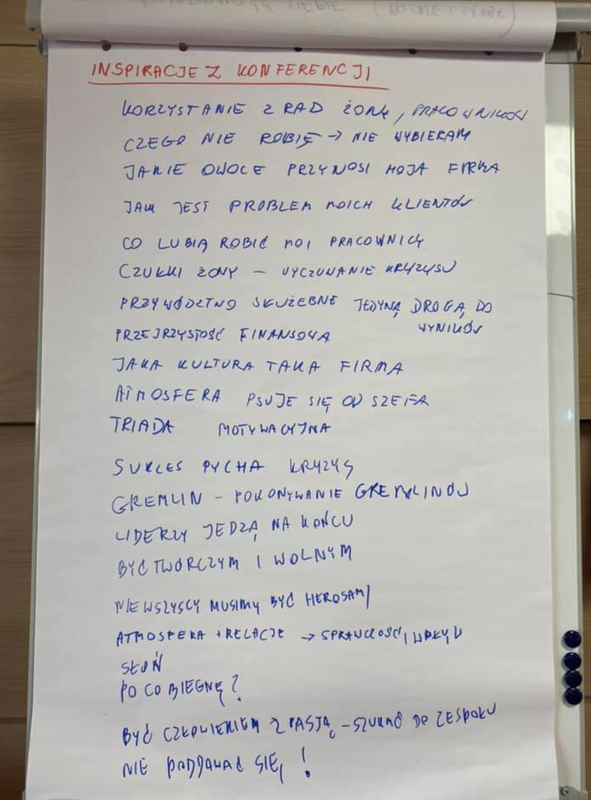 INSPIRACJE Z KONFERENCJI
KORZYSTANIE Z RAD ŻONY, PRACOWNIKÓW
CZEGO NIE ROBIĘ → NIE WYBIERAM
JAKIE OWOCE PRZYNOSI MOJA FIRMA
JAKI JEST PROBLEM MOICH KLIENTÓW
CO LUBIĄ ROBIĆ MOI PRACOWNICY
CZUJKI ŻONY – WYCZUWANIE KRYZYSU
PRZYWÓDZTWO SŁUŻEBNE JEDYNĄ DROGĄ DO WYNIKÓW
PRZEJRZYSTOŚĆ FINANSOWA
JAKA KULTURA TAKA FIRMA
ATMOSFERA PSUJE SIĘ OD SZEFA
TRIADA MOTYWACYJNA
SUKCES PYCHA KRYZYS
GREMLIN – POKONYWANIE GREMLINÓW
LIDERZY JEDZĄ NA KOŃCU
BYĆ TWÓRCZYM I WOLNYM
NIE WSZYSCY MUSIMY BYĆ HEROSAMI
ATMOSFERA + RELACJE → SPRAWCZOŚĆ I
SŁOŃ
PO CO BIEGNĘ?
BYĆ CZŁOWIEKIEM Z PASJĄ – SZUKAĆ DO ZESPOŁU
NIE PODDAWAĆ SIĘ!